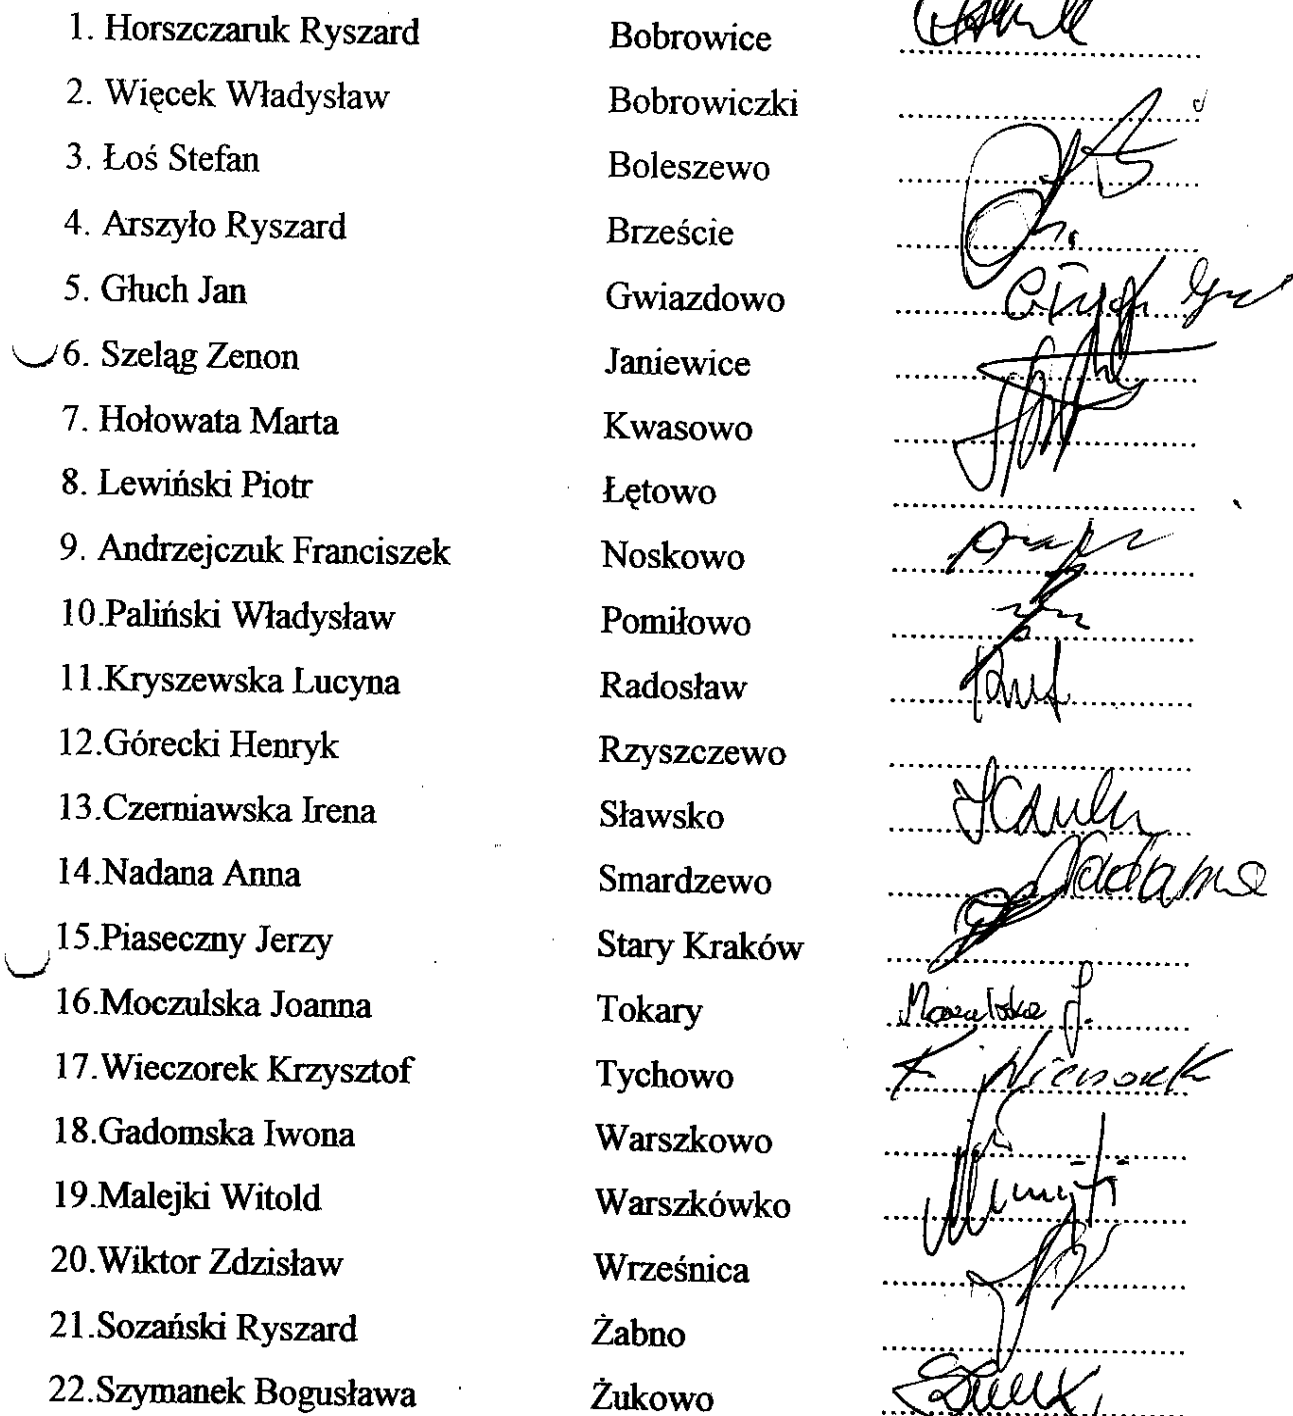 1. Horszczaruk Ryszard Bobrowice
2. Więcek Władysław Bobrowiczki
3. Łoś Stefan Boleszewo
4. Arszyło Ryszard Brzeście
5. Głuch Jan Gwiazdowo Głuch Jan
6. Szeląg Zenon Janiewice
7. Hołowata Marta Kwasowo
8. Lewiński Piotr Łętowo
9. Andrzejczuk Franciszek Noskowo
10.Paliński Władysław Pomiłowo
11.Kryszewska Lucyna Radosław
12.Górecki Henryk Rzyszczewo
13.Czerniawska Irena Sławsko
14.Nadana Anna Smardzewo Nadana
15.Piaseczny Jerzy Stary Kraków
16.Moczulska Joanna Tokary Moczulska J.
17.Wieczorek Krzysztof Tychowo K. Wieczorek
18.Gadomska Iwona Warszkowo
19.Malejki Witold Warszkówko
20.Wiktor Zdzisław Wrześnica
21.Sozański Ryszard Żabno
22.Szymanek Bogusława Żukowo